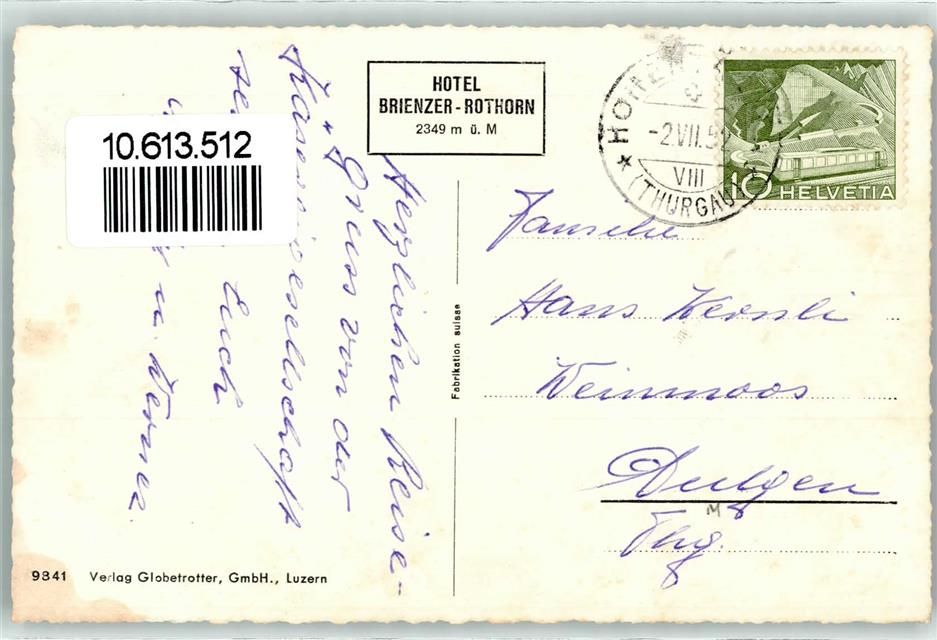 HOTEL
BRIENZER-ROTHORN
2349 m ü. M
10.613.512
-2.VII.5
VIII
(THURGAU)
10 HELVETIA
Herzlichen Reise-
Gruss von der
Käsereigesellschaft
Euch
u. Werner
Fabrikation suisse
Familie
Hans
Weinmoos
Thg.
9841 Verlag Globetrotter, GmbH., Luzern